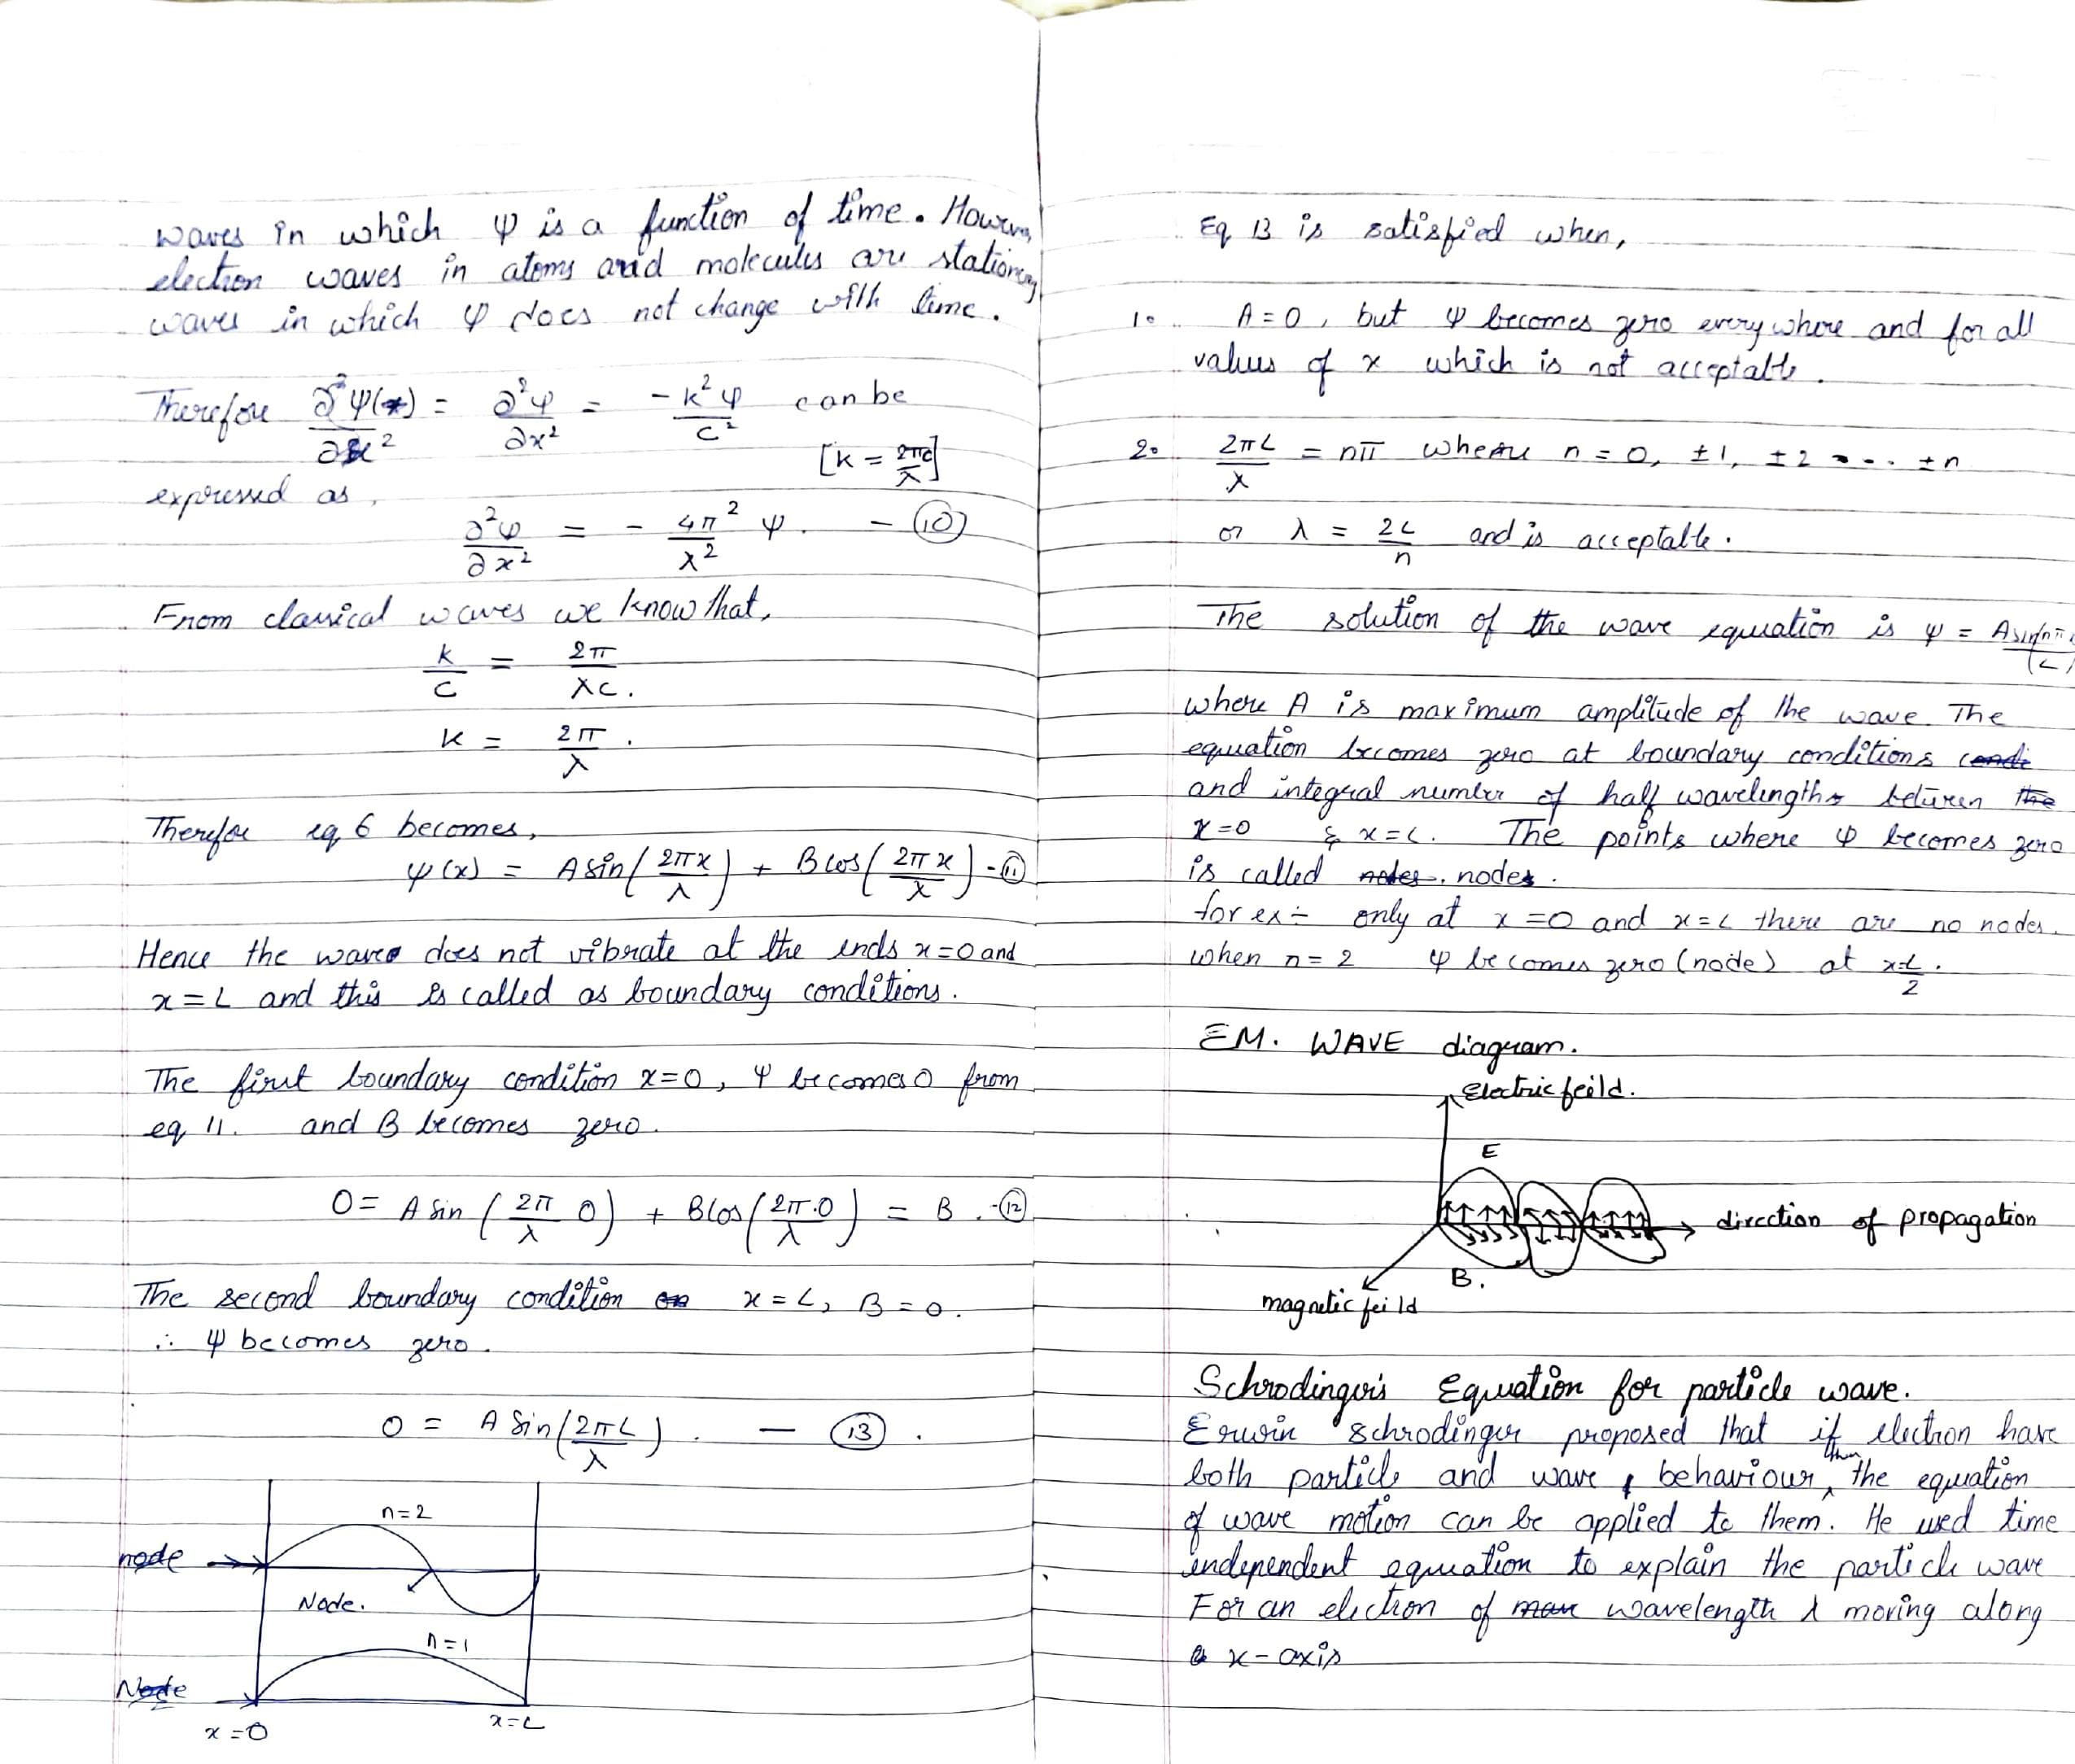 waves in which ψ is a function of time. However,
electron waves in atoms and molecules are stationery
waves in which ψ does not change with time.
Therefore ∂²ψ(x)/∂x² = ∂²ψ/∂x² = -k²ψ/c² can be
[k = 2πc/λ]
expressed as,
∂²ψ/∂x² = - 4π²/λ² ψ. - (10)
From classical waves we know that,
k/c = 2π/λc.
k = 2π/λ.
Therefor eq 6 becomes,
ψ(x) = A sin(2πx/λ) + B cos(2πx/λ) - (11)
Hence the wave does not vibrate at the ends x=0 and
x=L and this is called as boundary conditions.
The first boundary condition x=0, ψ becomes 0 from
eq 11. and B becomes zero.
0 = A sin(2π/λ 0) + B cos(2π.0/λ) = B. - (12)
The second boundary condition x=L, B=0.
∴ ψ becomes zero.
0 = A sin(2πL/λ). — (13).
n=2
node
Node.
n=1
Node
x=0
x=L
Eq 13 is satisfied when,
1. A=0, but ψ becomes zero everywhere and for all
values of x which is not acceptable.
2. 2πL/λ = nπ where n=0, ±1, ±2 .... ±n
or λ = 2L/n and is acceptable.
The solution of the wave equation is ψ = A sin(nπ/L)
where A is maximum amplitude of the wave. The
equation becomes zero at boundary conditions condi
and integral number of half wavelengths between the
x=0 & x=L. The points where ψ becomes zero
is called notes. nodes.
for ex:- only at x=0 and x=L there are no nodes.
when n=2 ψ becomes zero (node) at x=L/2.
EM. WAVE diagram.
Electric feild.
E
direction of propagation
B.
magnetic feild
Schrodinger's Equation for particle wave.
Erwin Schrodinger proposed that if electron have
both particle and wave behaviour, then the equation
of wave motion can be applied to them. He used time
independent equation to explain the particle wave
For an electron of wavelength λ moving along
x-axis